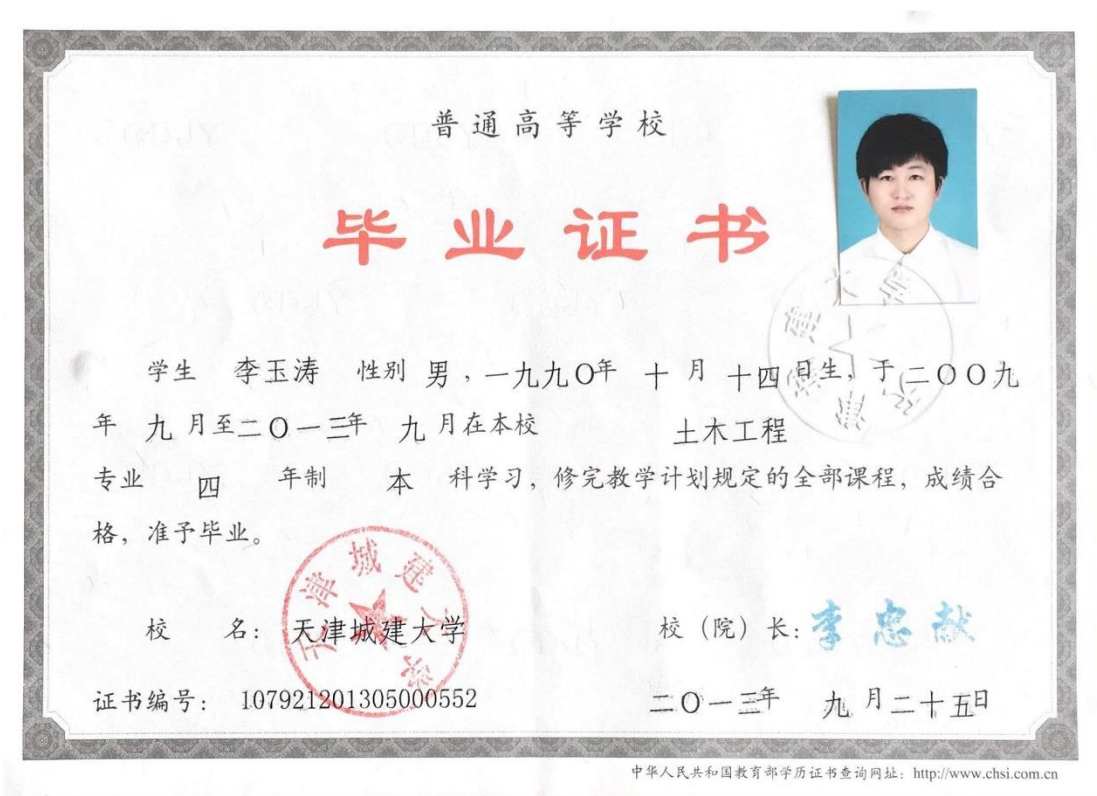 普通高等学校
毕业证书
学生 李玉涛 性别 男，一九九〇年 十 月 十四日生，于二〇〇九
年 九 月至二〇一三年 九 月在本校 土木工程
专业 四 年制 本 科学习，修完教学计划规定的全部课程，成绩合
格，准予毕业。
校 名：天津城建大学
校（院）长：李忠献
天津城建大学
证书编号：107921201305000552
二〇一三年 九 月二十五日
中华人民共和国教育部学历证书查询网址：http://www.chsi.com.cn